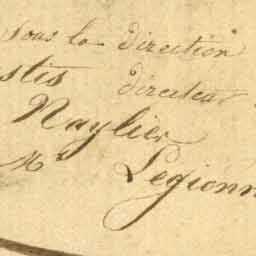 sous la direction
stis directeur
Naylier
Mr Legionn